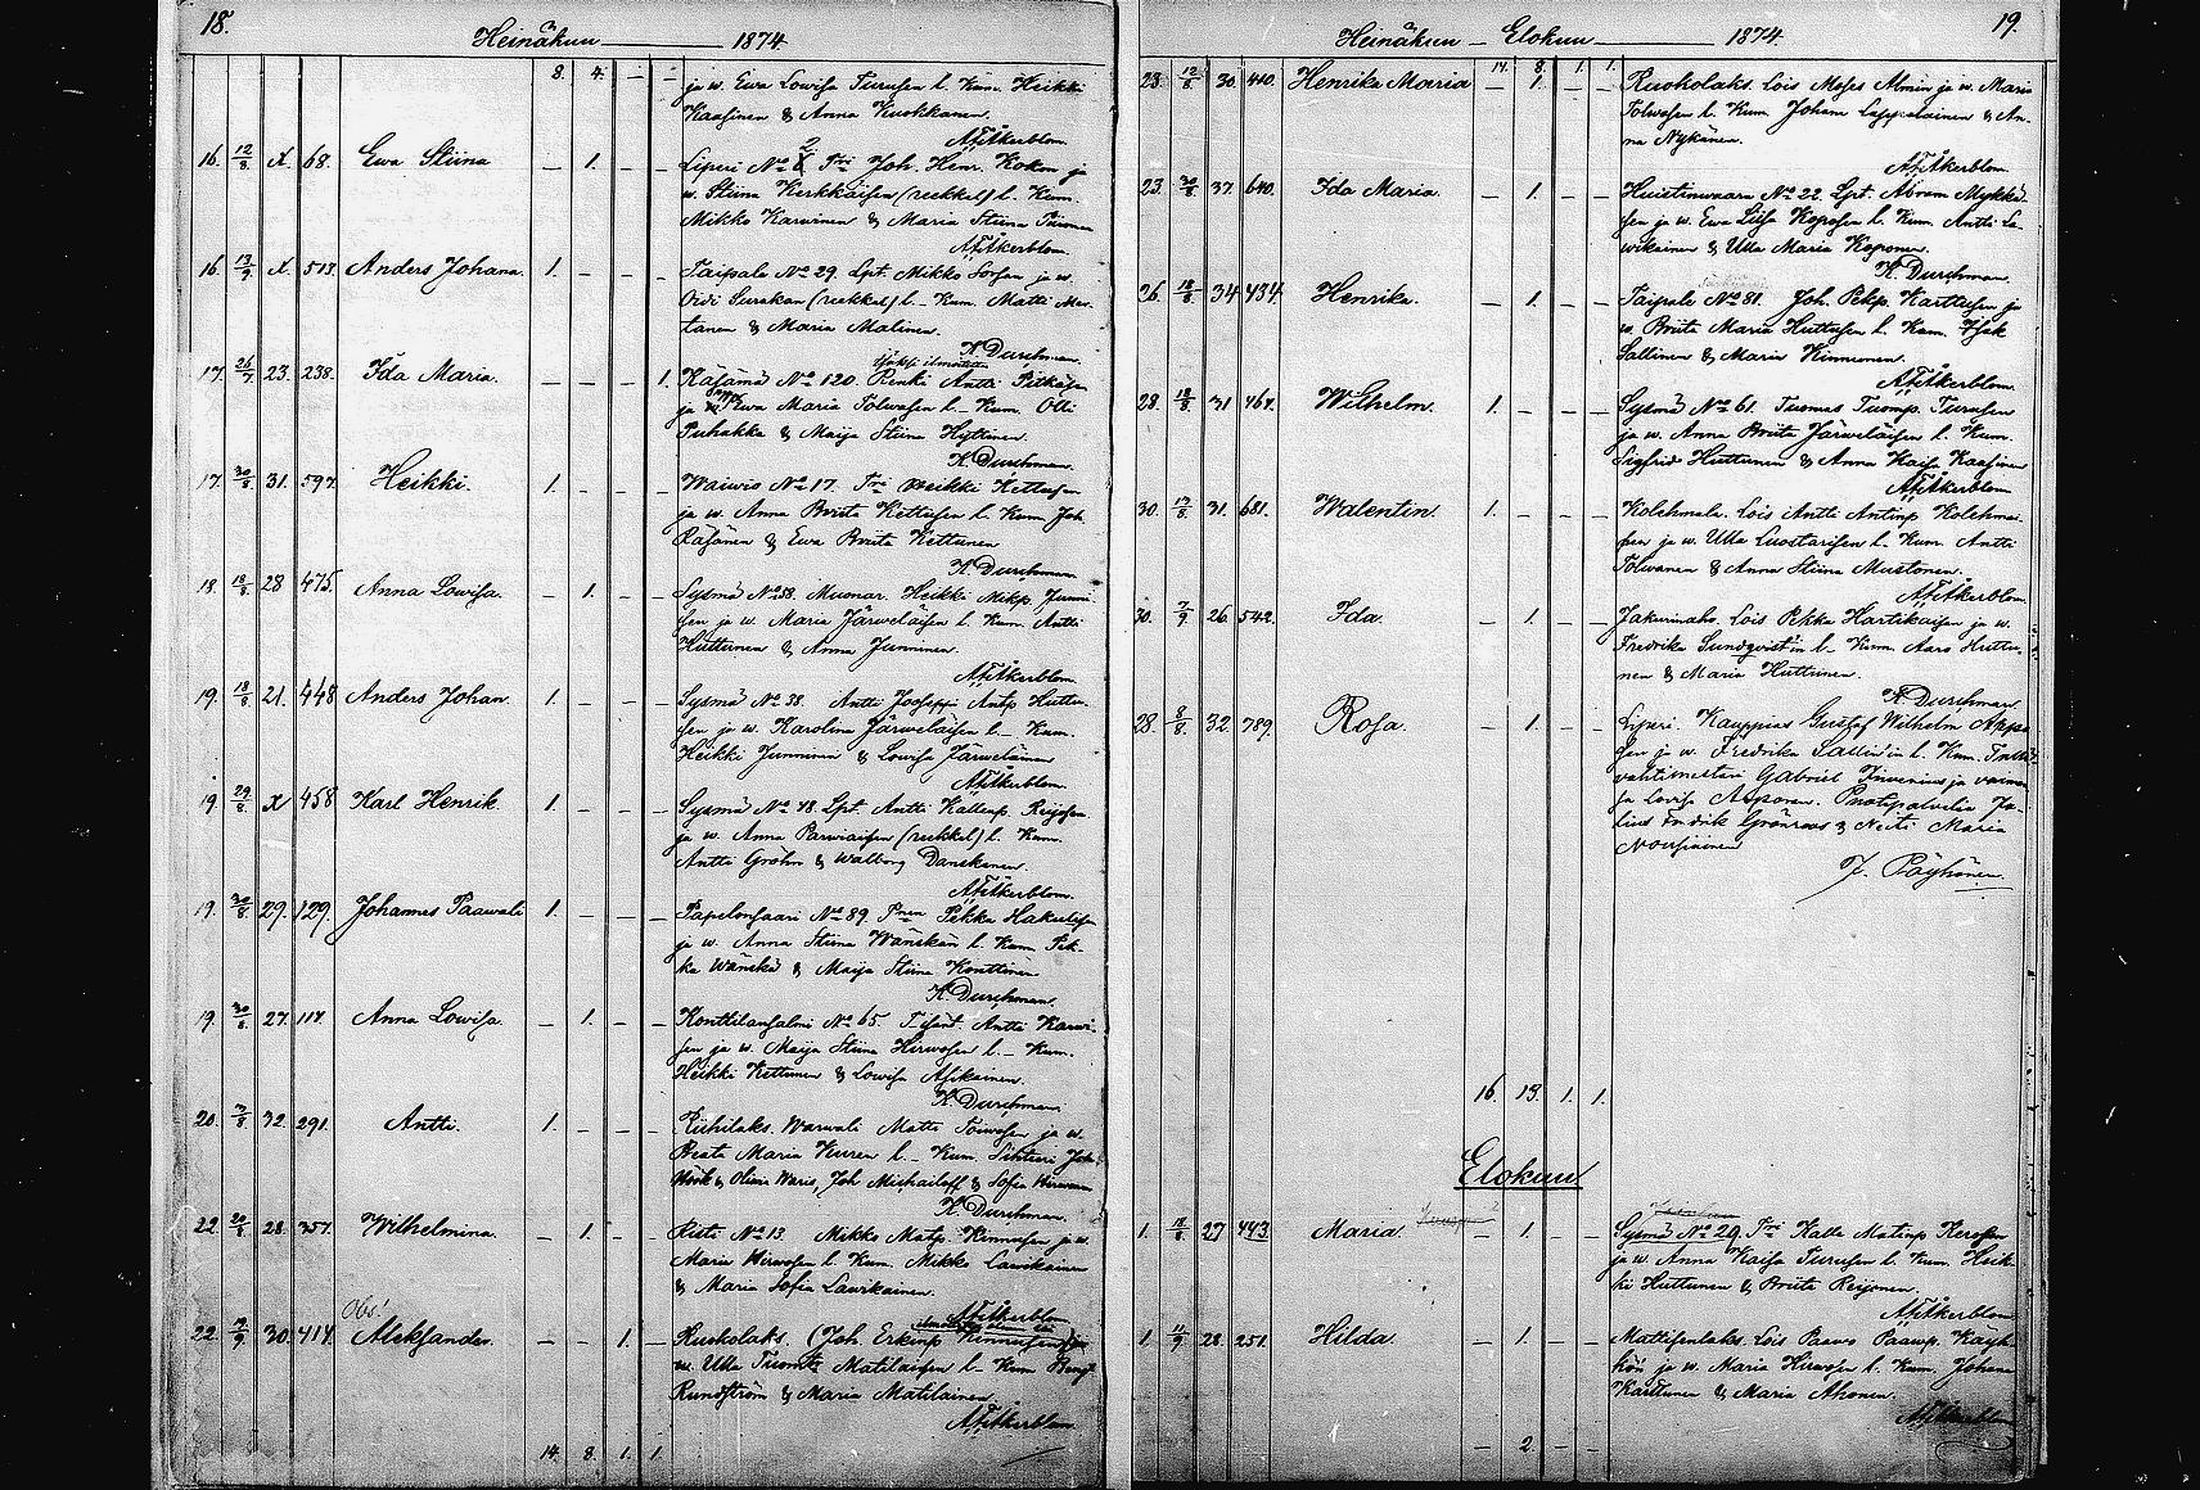 18.
Heinäkuu 1874
8. 4. — —
ja w. Ewa Lowisa Turusen l. Kum. Heikki
Kaasinen & Anna Kuokkanen.
A.F. Åkerblom.
16. 12/8. X. 68. Ewa Stiina — 1. — — Liperi No 2 Joh. Henr. Kokon ja
w. Stiina Kerkkäisen (reekkal) l. Kum.
Mikko Karwinen & Maria Stiina Turonen
A.F. Åkerblom.
16. 13/9 X. 513. Anders Johana. 1. — — — Taipale No 29. Lpt. Mikko Sorsan ja w.
Oidi Surakan (reekkal) l. — Kum. Matti Mar-
tanen & Maria Malinen.
K. Durchman.
17. 26/7. 23. 238. Ida Maria. — — — 1. Käsämä No 120. Renki Antti Pitkäsen
ja Ewa Maria Tolwasen l. — Kum. Olli
Puhakka & Maija Stiina Hyttinen.
K. Durchman.
17. 30/8. 31. 597. Heikki. 1. — — — Waiwio No 17. Heikki Kettusen
ja w. Anna Briita Kettusen l. Kum. Joh.
Räsänen & Ewa Briita Kettunen
K. Durchman.
18. 18/8. 28 475. Anna Lowisa. — 1. — — Sysmä No 58. Muonar. Heikki Mikp. Junni-
sen ja w. Maria Järweläisen l. Kum. Antti
Huttunen & Anna Junninen.
A.F. Åkerblom.
19. 18/8 21. 448 Anders Johan. 1. — — — Sysmä No 38. Antti Jooseppi Antp Huttu-
sen ja w. Karolina Järweläisen l. — Kum.
Heikki Junninen & Lowisa Järweläinen
A.F. Åkerblom.
19. 29/8. X 458 Karl Henrik. 1. — — — Sysmä No 48. Lpt. Antti Kallenp. Reijosen
ja w. Anna Parwiaisen (reekkal) l. Kum.
Antti Gröhn & Walborg Danskanen.
A.F. Åkerblom.
19. 30/8. 29. 129. Johannes Paawali 1. — — — Papelonsaari No 89. Pekka Hakulisen
ja w. Anna Stiina Wänskän l. Kum. Pek-
ka Wänskä & Maija Stiina Konttinen
K. Durchman.
19. 30/8. 27. 117. Anna Lowisa. — 1. — — Konttilansalmi No 65. Antti Karwi-
sen ja w. Maija Stiina Hirwosen l. — Kum.
Heikki Kettunen & Lowisa Asikainen.
K. Durchman.
20. 3/8. 32. 291. Antti. 1. — — — Riihilaks. Matti Toiwosen ja w.
Beata Maria Kuren l. — Kum. Joh.
Höök & Olivia Waris, Joh Michailoff & Sofia Hirwonen
K. Durchman.
22. 20/8. 28. 357. Wilhelmina. — 1. — — Risti No 13. Mikko Matp. Kinnusen ja w.
Maria Hirwosen l. Kum. Mikko Lawikainen
& Maria Sofia Lawikainen.
A.F. Åkerblom
Obs!
22. 19/9 30. 417. Aleksander. — — 1. — Ruokolaks. (Joh Erkinp Kinnusen) ja
w. Ulla Matilaisen l. — Kum Bengt
Rundström & Maria Matilainen.
A.F. Åkerblom.
14. 8. 1. 1.
19.
Heinäkuu — Elokuu 1874.
14. 8. 1. 1.
23. 12/8. 30. 410. Henrika Maria — 1. — — Ruokolaks. Lois Moses Almin ja w. Maria
Tolwasen l. Kum. Johan Lappalainen & An-
na Nykänen.
A.F. Åkerblom.
23. 30/8. 37. 640. Ida Maria. — 1. — — Huistinwaara No 22. Lpt. Abram Mykkä-
sen ja w. Ewa Liisa Koposen l. Kum. Antti La-
wikainen & Ulla Maria Koponen.
K. Durchman.
26. 18/8. 34 434. Henrika. — 1. — — Taipale No 81. Joh. Pekp. Karttusen ja
w. Briita Maria Huttusen l. Kum. Isak
Sallinen & Maria Kinnunen.
A.F. Åkerblom.
28. 18/8. 31 467. Wilhelm. 1. — — — Sysmä No 61. Tuomas Tuomp. Turusen
ja w. Anna Briita Järweläisen l. Kum.
Sigfrid Huttunen & Anna Kaisa Kaasinen
A.F. Åkerblom
30. 17/8. 31. 681. Walentin. 1. — — — Kolehmala. Lois Antti Antinp Kolehmai-
sen ja w. Ulla Luostarisen l. Kum. Antti
Tolwanen & Anna Stiina Mustonen.
A.F. Åkerblom.
30. 7/9. 26. 542. Ida. — 1. — — Jakurinaho. Lois Pekka Hartikaisen ja w.
Fredrika Sundqvist'in l. — Kum. Aaro Huttu-
nen & Maria Huttunen.
K. Durchman
28. 8/8. 32. 789. Rosa. — 1. — — Liperi. Kauppias Gustaf Wilhelm Appo
sen ja w. Fredrika Sallin'in l. Kum.
vahtimestari Gabriel Inwenius ja vaimon-
sa Lovisa Asponen. Puotipalvelia Ju-
lius Fredrik Grönroos & Neiti Maria
Nousiainen
J. Päyhönen.
16. 13. 1. 1.
Elokuu
1. 18/8 27 443. Maria. — 1. — — Sysmä No 29. Kalle Matinp Kerosen
ja w. Anna Kaisa Turusen l. Kum. Heik-
ki Huttunen & Briita Reijonen.
A.F. Åkerblom
1. 11/9 28. 251. Hilda. — 1. — — Mattisenlaks. Lois Paawo Paawp. Käyh-
kön ja w. Maria Hirwosen l. Kum. Johan
Karttunen & Maria Ahonen.
A.F. Åkerblom
— 2. — —